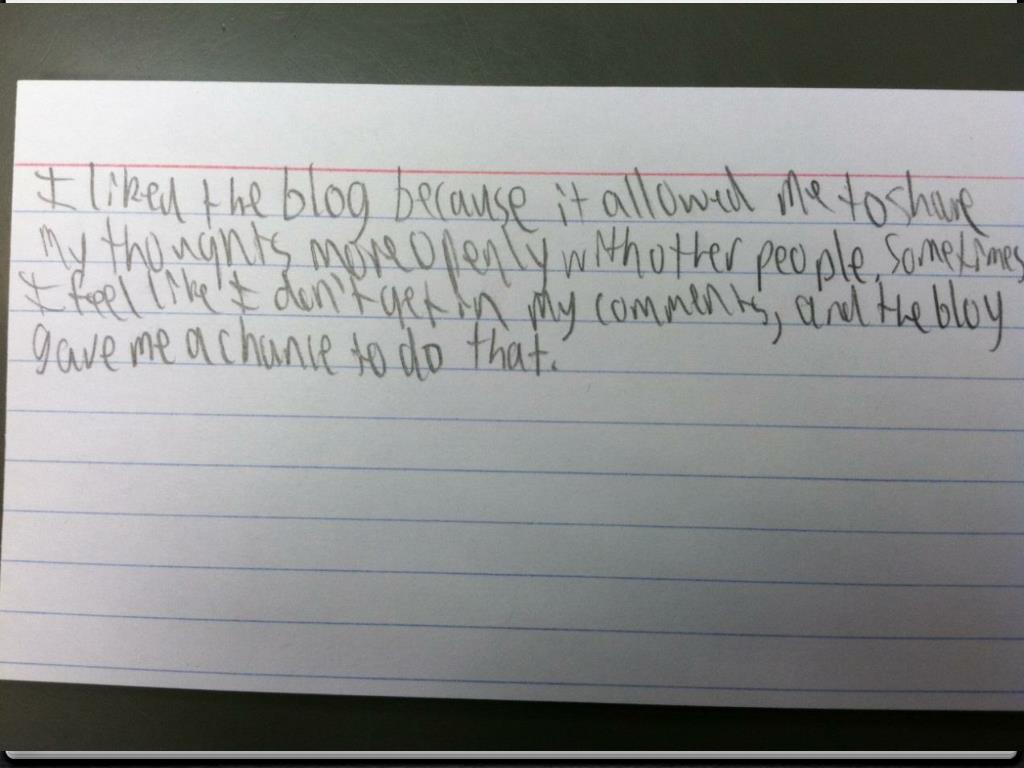 I liked the blog because it allowed me to share
my thoughts more openly with other people. Sometimes
I feel like I don't get in my comments, and the blog
gave me a chance to do that.